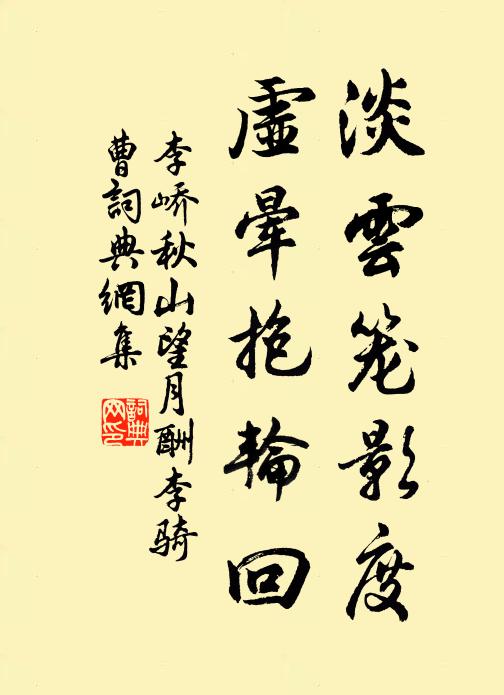 淡雲笼影度
虛暈抱輪回
李峤秋山望月酬李骑
曹詞典網集
詞典网印